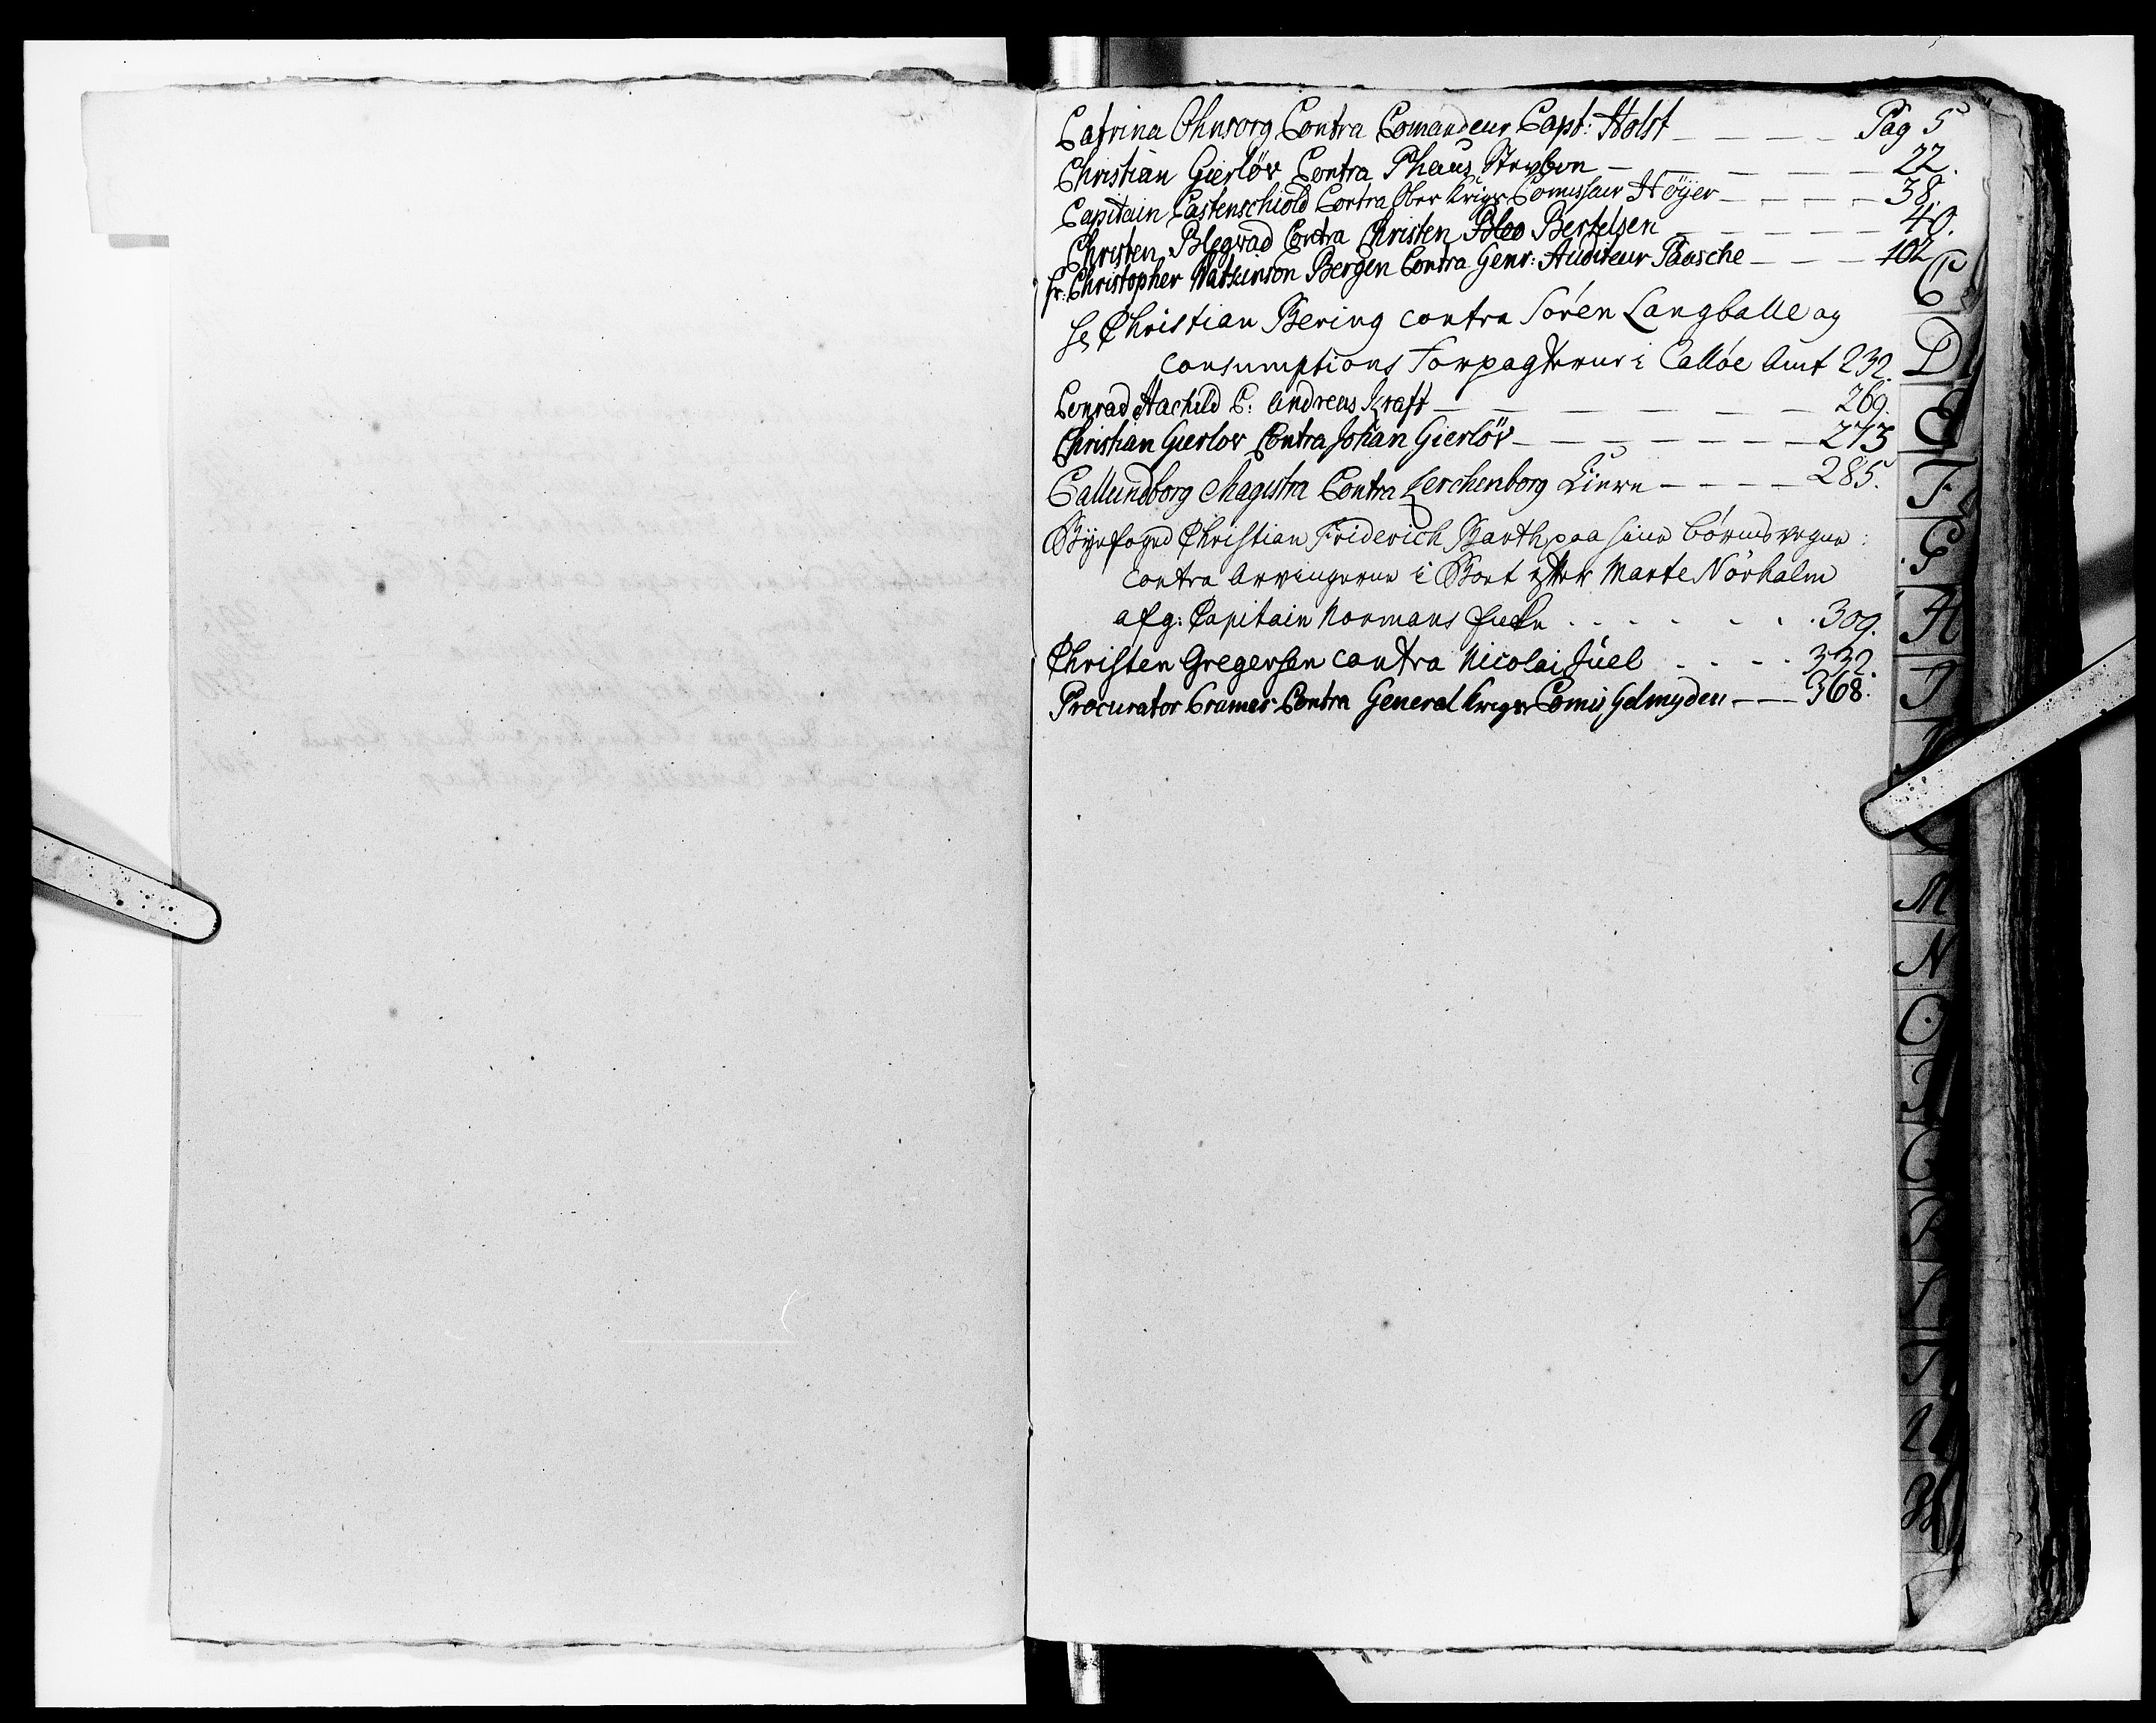 Catrina Ohnsorg Contra Comandeur Capt: Holst — — — — Pag 5
Christian Gierlöv Contra Thaus Strybon — — — — — 22.
Capitain Castenschiold Contra Ober Krigs Comissair Höyer — — — — 38.
Christen Blegvad Contra Christen Bertelsen — — — — — 40.
fr: Christopher Watkinson Bergen Contra Genr: Auditeur Paasche — — — 102
C
Sr Christian Bering contra Sören Langballe og
Consumptions Forpagterne i Callöe Amt 232.
D
Conrad Hachild C: Andreas Kraft — — — — — — 269.
Christian Gierlov Contra Johan Gierlöv — — — — — — — 273
E
Callundborg Magistra Contra Lerchenborg Liern — — — — 285.
F
Byefoged Christian Friderich Barth paa sine börns vegne:
G
Contra Arvingerne i Boet efter Marte Nörholm
afg: Capitain Normans Encke . . . . . . 309.
H
Christen Gregersen contra Nicolai Juel . . . . 332.
I
Procurator Cramer Contra General Krigs Comis Gelmyden — — 368.
M
N
O